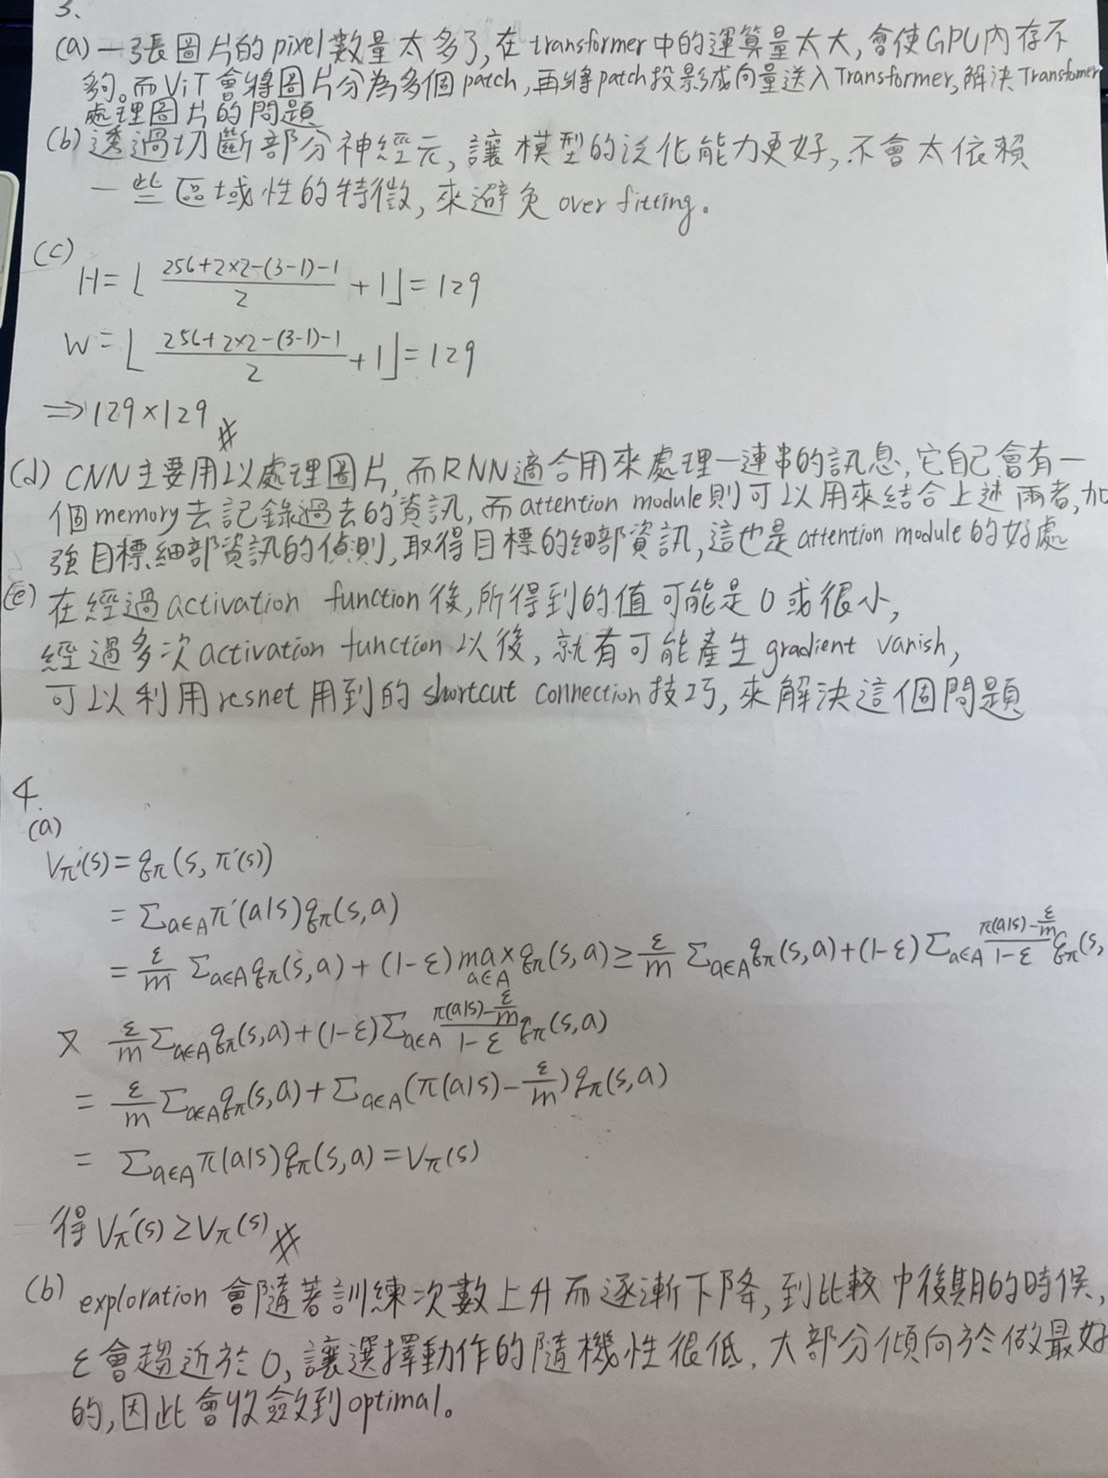 3.
(a) 一張圖片的pixel數量太多了,在transformer中的運算量太大,會使GPU內存不
夠。而ViT會將圖片分為多個patch,再將patch投影成向量送入Transformer,解決Transfomer
處理圖片的問題
(b) 透過切斷部分神經元,讓模型的泛化能力更好,不會太依賴
一些區域性的特徵,來避免overfitting。
(c)
H=⌊ (256+2×2-(3-1)-1)/2 +1⌋=129
W=⌊ (256+2×2-(3-1)-1)/2 +1⌋=129
⇒129×129 #
(d) CNN主要用以處理圖片,而RNN適合用來處理一連串的訊息,它自己會有一
個memory去記錄過去的資訊,而attention module則可以用來結合上述兩者,加
強目標細部資訊的偵測,取得目標的細部資訊,這也是attention module的好處
(e) 在經過activation function後,所得到的值可能是0或很小,
經過多次activation function以後,就有可能產生gradient vanish,
可以利用resnet用到的shortcut connection技巧,來解決這個問題
4.
(a)
Vπ'(s)=qπ(s,π'(s))
=Σa∈A π'(a|s)qπ(s,a)
=ε/m Σa∈A qπ(s,a)+(1-ε)max a∈A qπ(s,a)≥ε/m Σa∈A qπ(s,a)+(1-ε)Σa∈A (π(a|s)-ε/m)/(1-ε) qπ(s,
又 ε/m Σa∈A qπ(s,a)+(1-ε)Σa∈A (π(a|s)-ε/m)/(1-ε) qπ(s,a)
= ε/m Σa∈A qπ(s,a)+Σa∈A(π(a|s)-ε/m)qπ(s,a)
= Σa∈A π(a|s)qπ(s,a)=Vπ(s)
得Vπ'(s)≥Vπ(s) #
(b) exploration會隨著訓練次數上升而逐漸下降,到比較中後期的時候,
ε會趨近於0,讓選擇動作的隨機性很低,大部分傾向於做最好
的,因此會收斂到optimal。